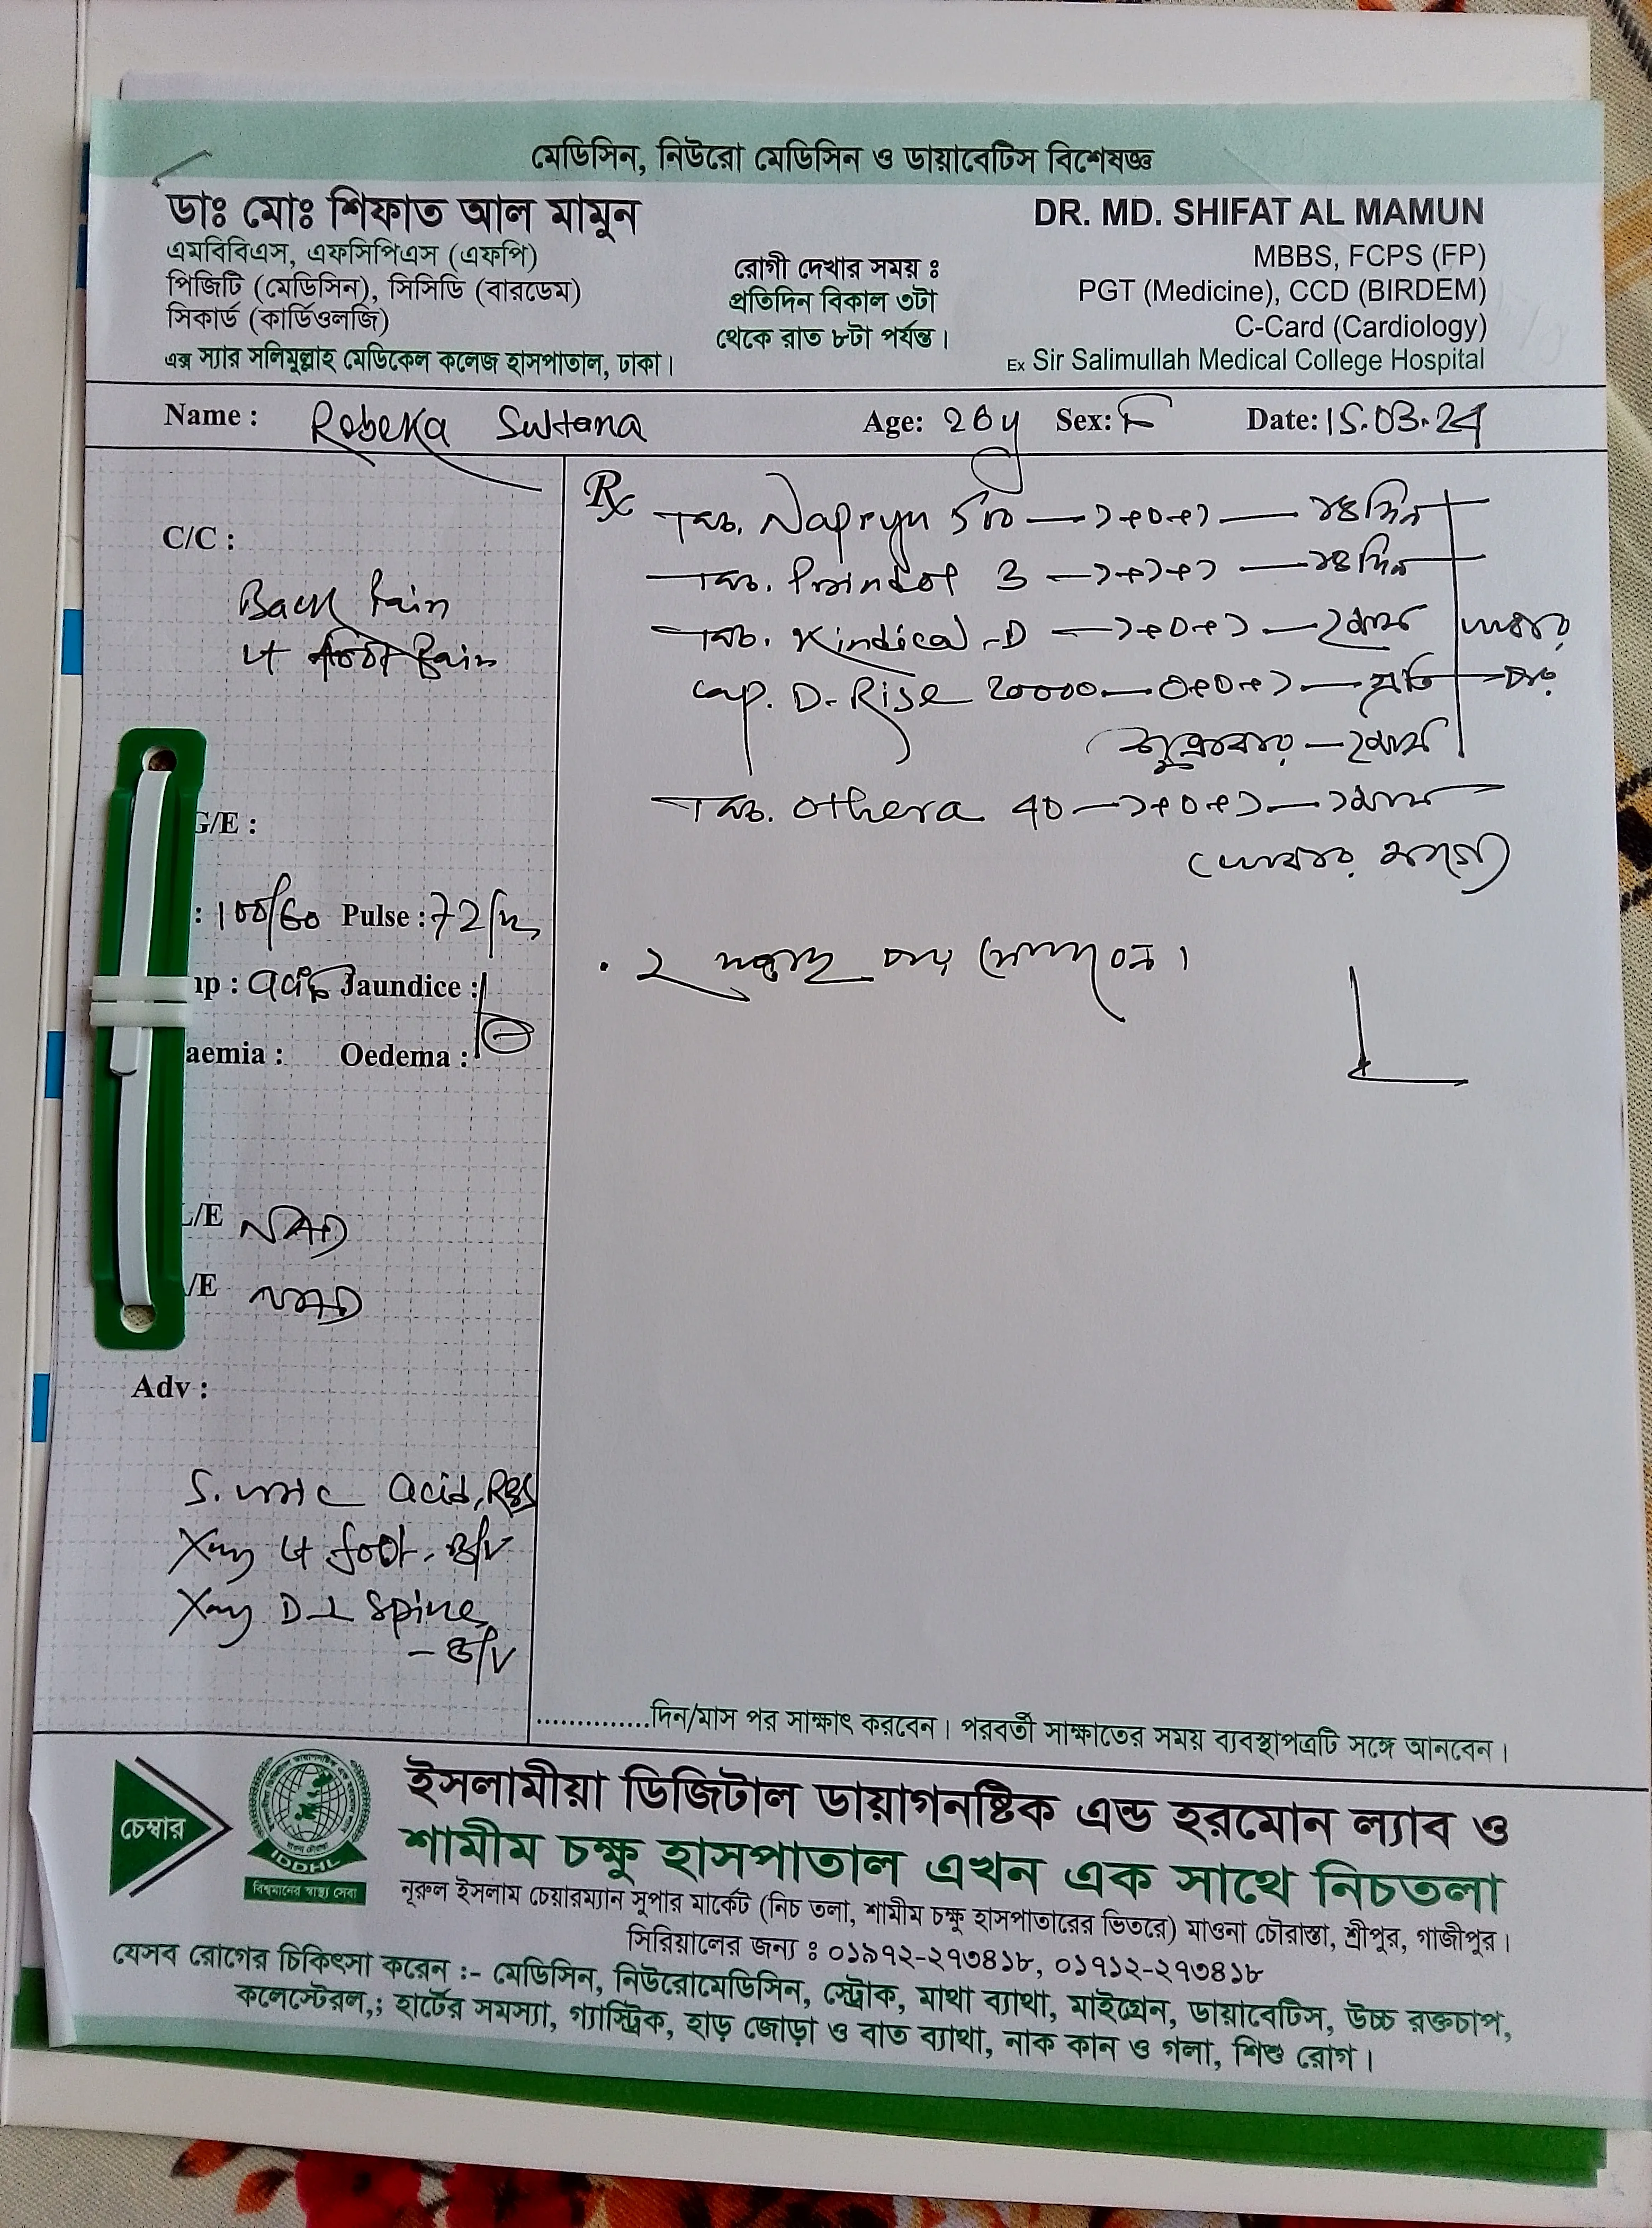 মেডিসিন, নিউরো মেডিসিন ও ডায়াবেটিস বিশেষজ্ঞ
ডাঃ মোঃ শিফাত আল মামুন
এমবিবিএস, এফসিপিএস (এফপি)
পিজিটি (মেডিসিন), সিসিডি (বারডেম)
সিকার্ড (কার্ডিওলজি)
এক্স স্যার সলিমুল্লাহ মেডিকেল কলেজ হাসপাতাল, ঢাকা।
রোগী দেখার সময় ঃ
প্রতিদিন বিকাল ৩টা
থেকে রাত ৮টা পর্যন্ত।
DR. MD. SHIFAT AL MAMUN
MBBS, FCPS (FP)
PGT (Medicine), CCD (BIRDEM)
C-Card (Cardiology)
Ex Sir Salimullah Medical College Hospital
Name : Robeka Sultana Age: 26y Sex: F Date: 15.03.24
C/C :
Back Pain
Lt foot Pain
G/E :
: 100/60 Pulse : 72/m
mp : Jaundice :
aemia : Oedema :
L/E NAD
/E NAD
Adv :
S. uric acid, RBS
Xray Lt foot - B/V
Xray D-L Spine
- B/V
Rx
ট্যাব. 500 — ১+০+১ — ১৪ দিন
ট্যাব. 3 — ১+১+১ — ১৪ দিন
ট্যাব. Kindical-D — ১+০+১ — ২ মাস
cap. D-Rise 20000 — ০+০+১ — প্রতি
শুক্রবার — ২ মাস
ট্যাব. Othera 40 — ১+০+১ — ১ মাস
(খাবার আগে)
খাবার
পর
. ২ সপ্তাহ পর
দিন/মাস পর সাক্ষাৎ করবেন। পরবর্তী সাক্ষাতের সময় ব্যবস্থাপত্রটি সঙ্গে আনবেন।
চেম্বার
IDDHL
বিশ্বমানের স্বাস্থ্য সেবা
ইসলামীয়া ডিজিটাল ডায়াগনষ্টিক এন্ড হরমোন ল্যাব ও
শামীম চক্ষু হাসপাতাল এখন এক সাথে নিচতলা
নূরুল ইসলাম চেয়ারম্যান সুপার মার্কেট (নিচ তলা, শামীম চক্ষু হাসপাতারের ভিতরে) মাওনা চৌরাস্তা, শ্রীপুর, গাজীপুর।
সিরিয়ালের জন্য ঃ ০১৯৭২-২৭৩৪১৮, ০১৭১২-২৭৩৪১৮
যেসব রোগের চিকিৎসা করেন :- মেডিসিন, নিউরোমেডিসিন, স্ট্রোক, মাথা ব্যাথা, মাইগ্রেন, ডায়াবেটিস, উচ্চ রক্তচাপ,
কলেস্টেরল,; হার্টের সমস্যা, গ্যাস্ট্রিক, হাড় জোড়া ও বাত ব্যাথা, নাক কান ও গলা, শিশু রোগ।